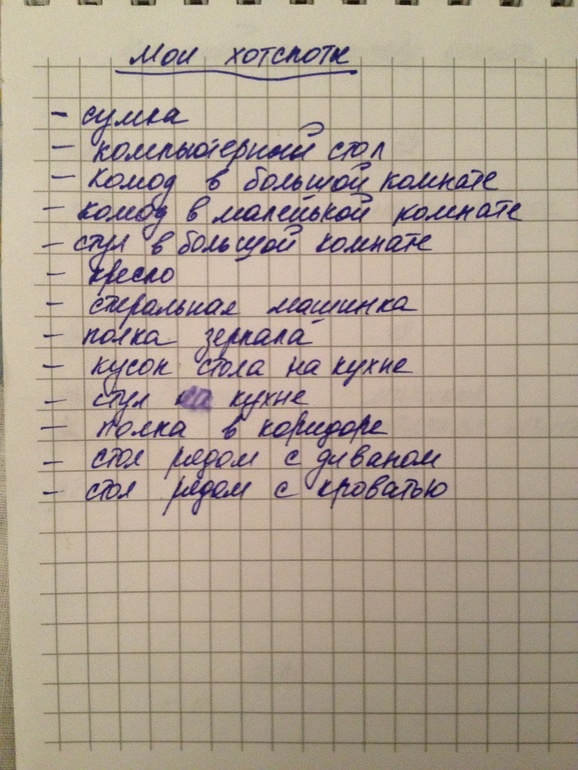 Мои хотспоты
- сумка
- компьютерный стол
- комод в большой комнате
- комод в маленькой комнате
- стул в большой комнате
- кресло
- стиральная машинка
- полка зеркала
- кусок стола на кухне
- стул на кухне
- полка в коридоре
- стол рядом с диваном
- стол рядом с кроватью